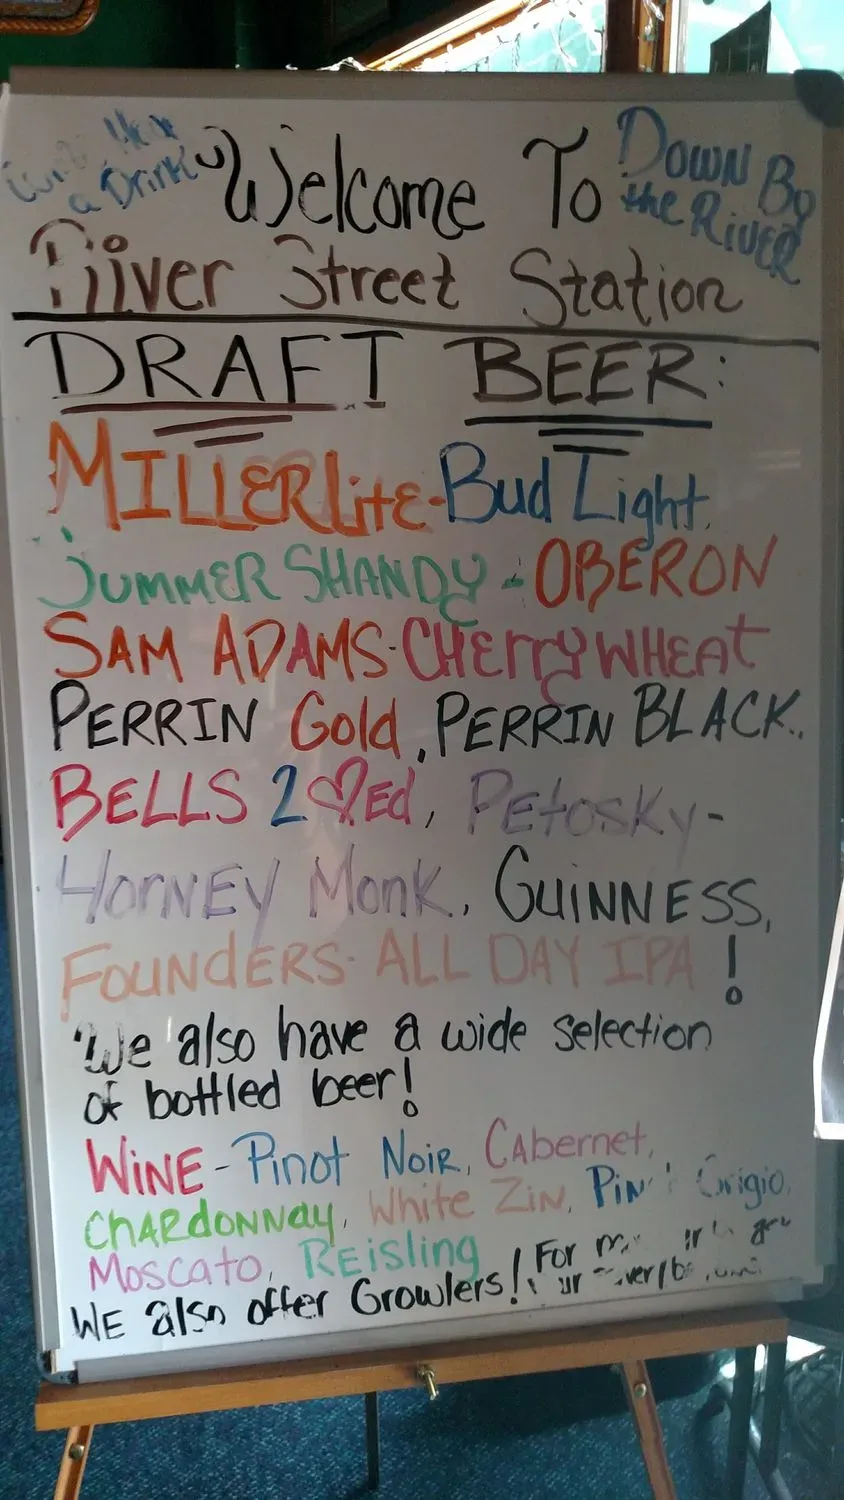 Have
a Drink
Welcome To
Down By
the River
River Street Station
DRAFT BEER:
MILLER Lite - Bud Light,
Summer SHANDy - OBERON
SAM ADAMS - CHErry WHEAt
PERRIN Gold, PERRIN BLACK,
BELLS 2♡Ed, PEtosKy-
HorNEy Monk, GUINNESS,
FOUNdERS - ALL DAY IPA!
We also have a wide selection
of bottled beer!
WINE - Pinot Noir, Cabernet,
CHARdoNNay, White Zin, Pinot Grigio,
Moscato, REisling
WE also offer Growlers! For